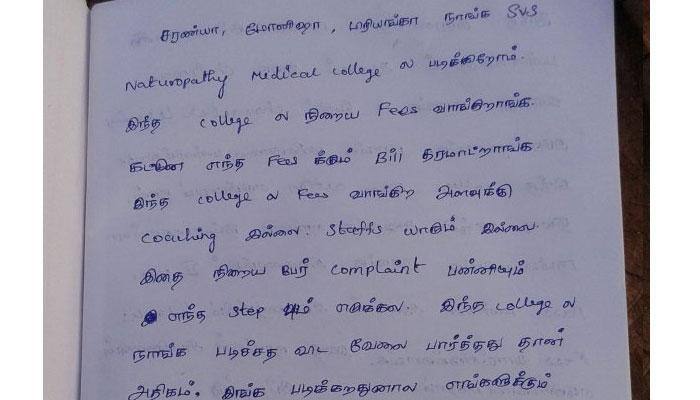 சரண்யா, மோனிஷா, பிரியங்கா நாங்க SVS
Naturopathy Medical college ல படிக்கிறோம்.
இந்த college ல நிறைய Fees வாங்கிறாங்க.
கட்டின எந்த Fees க்கும் Bill தரமாட்றாங்க
இந்த college ல Fees வாங்கிற அளவுக்கு
coaching இல்லை. Staffs யாரும் இல்லை
இதை நிறைய பேர் complaint பண்ணியும்
எந்த step ம் எடுக்கல. இந்த college ல
நாங்க படிச்சத விட வேலை பார்த்தது தான்
அதிகம். இங்க படிக்கறதுனால எங்களுக்கும்